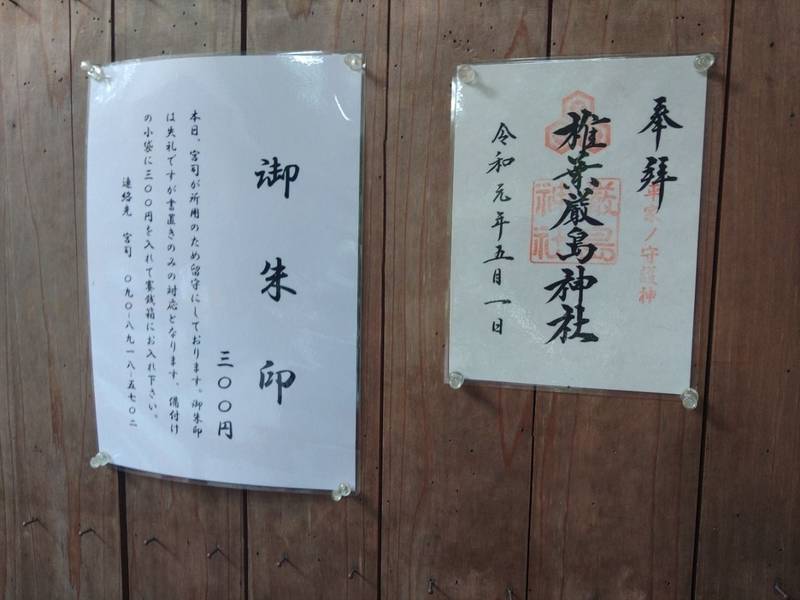 御朱印
三〇〇円
本日、宮司が所用のため留守にしております。御朱印
は失礼ですが書置きのみの対応となります。備付け
の小袋に三〇〇円を入れて賽銭箱にお入れ下さい。
連絡先 宮司 〇九〇-八九一八-五七〇二
奉拝
平家ノ守護神
椎葉厳島神社
厳島
神社
令和元年五月一日